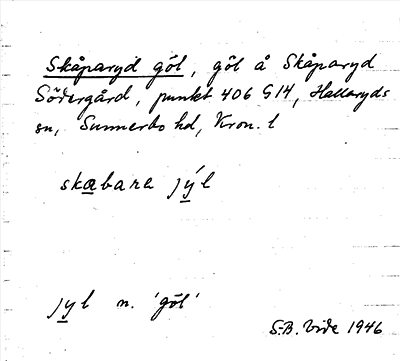 Skåparyd göl, göl å Skåparyd
Södergård, punkt 406 G14, Hallaryds
sn, Sunnerbo hd, Kron. l
skabara jýl
jyl n. 'göl'
S.-B. Vide 1946